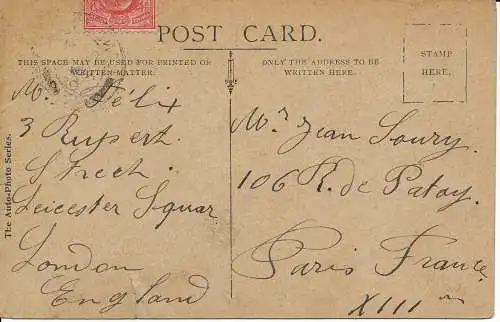 POST CARD.
THIS SPACE MAY BE USED FOR PRINTED OR
WRITTEN MATTER.
ONLY THE ADDRESS TO BE
WRITTEN HERE.
STAMP
HERE.
The Auto-Photo Series.
M. Félix
3 Rupert
Street
Leicester Squar
London
England
Mr Jean Soury
106 R. de Patay.
Paris France
XIII